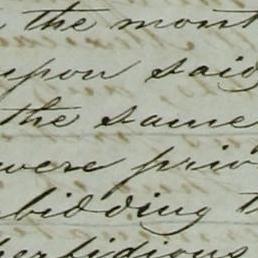 the mont
upon said
the same
were priv
bidding t
perfidious